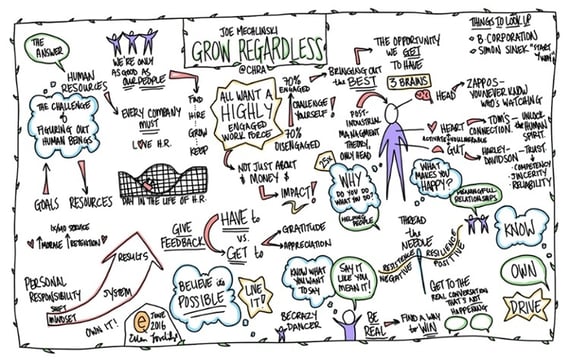 THE ANSWER
HUMAN RESOURCES
WE'RE ONLY
AS GOOD AS
OUR PEOPLE
THE CHALLENGE
of
FIGURING OUT
HUMAN BEINGS
EVERY COMPANY
MUST
LOVE H.R.
FIND
HIRE
GROW
KEEP
GOALS
RESOURCES
DAY IN THE LIFE OF H.R.
MORALE
RETENTION
RESULTS
PERSONAL
RESPONSIBILITY
SYSTEM
SHIFT
MINDSET
OWN IT!
JUNE
2016
JOE MECHLINSKI
GROW REGARDLESS
@CHRA
ALL WANT A
HIGHLY
ENGAGED
WORK FORCE
30%
ENGAGED
CHALLENGE
YOURSELF!
70%
DISENGAGED
NOT JUST ABOUT
$ MONEY $
IMPACT!
GIVE
FEEDBACK
HAVE to
VS.
GET to
GRATITUDE
APPRECIATION
BELIEVE its
POSSIBLE
LIVE
IT!
KNOW WHAT
YOU WANT
TO SAY
SAY IT
LIKE YOU
MEAN IT!
BE CRAZY
DANCER
BE
REAL
FIND A WAY
for WIN
THE OPPORTUNITY
WE GET
TO HAVE
BRINGING OUT
the BEST
3 BRAINS
POST-
INDUSTRIAL
MANAGEMENT
THEORY,
ONLY HEAD
25x
WHY
DO YOU DO
WHAT YOU DO?
HELPING
PEOPLE
HEAD
ZAPPOS-
YOU NEVER KNOW
WHO'S WATCHING
HEART
TOM'S
CONNECTION.
UNLOCK
the HUMAN
SPIRIT.
GUT
HARLEY-
DAVIDSON
TRUST
COMPETENCY
SINCERITY
RELIABILITY
WHAT
MAKES YOU
HAPPY?
MEANINGFUL
RELATIONSHIPS
THREAD
the
NEEDLE
RESILIENCE
NEGATIVE
RESILIENCE
POSITIVE
GET TO THE
REAL CONVERSATION
THAT'S NOT
HAPPENING
KNOW
OWN
DRIVE
THINGS TO LOOK UP
B. CORPORATION
SIMON SINEK "START